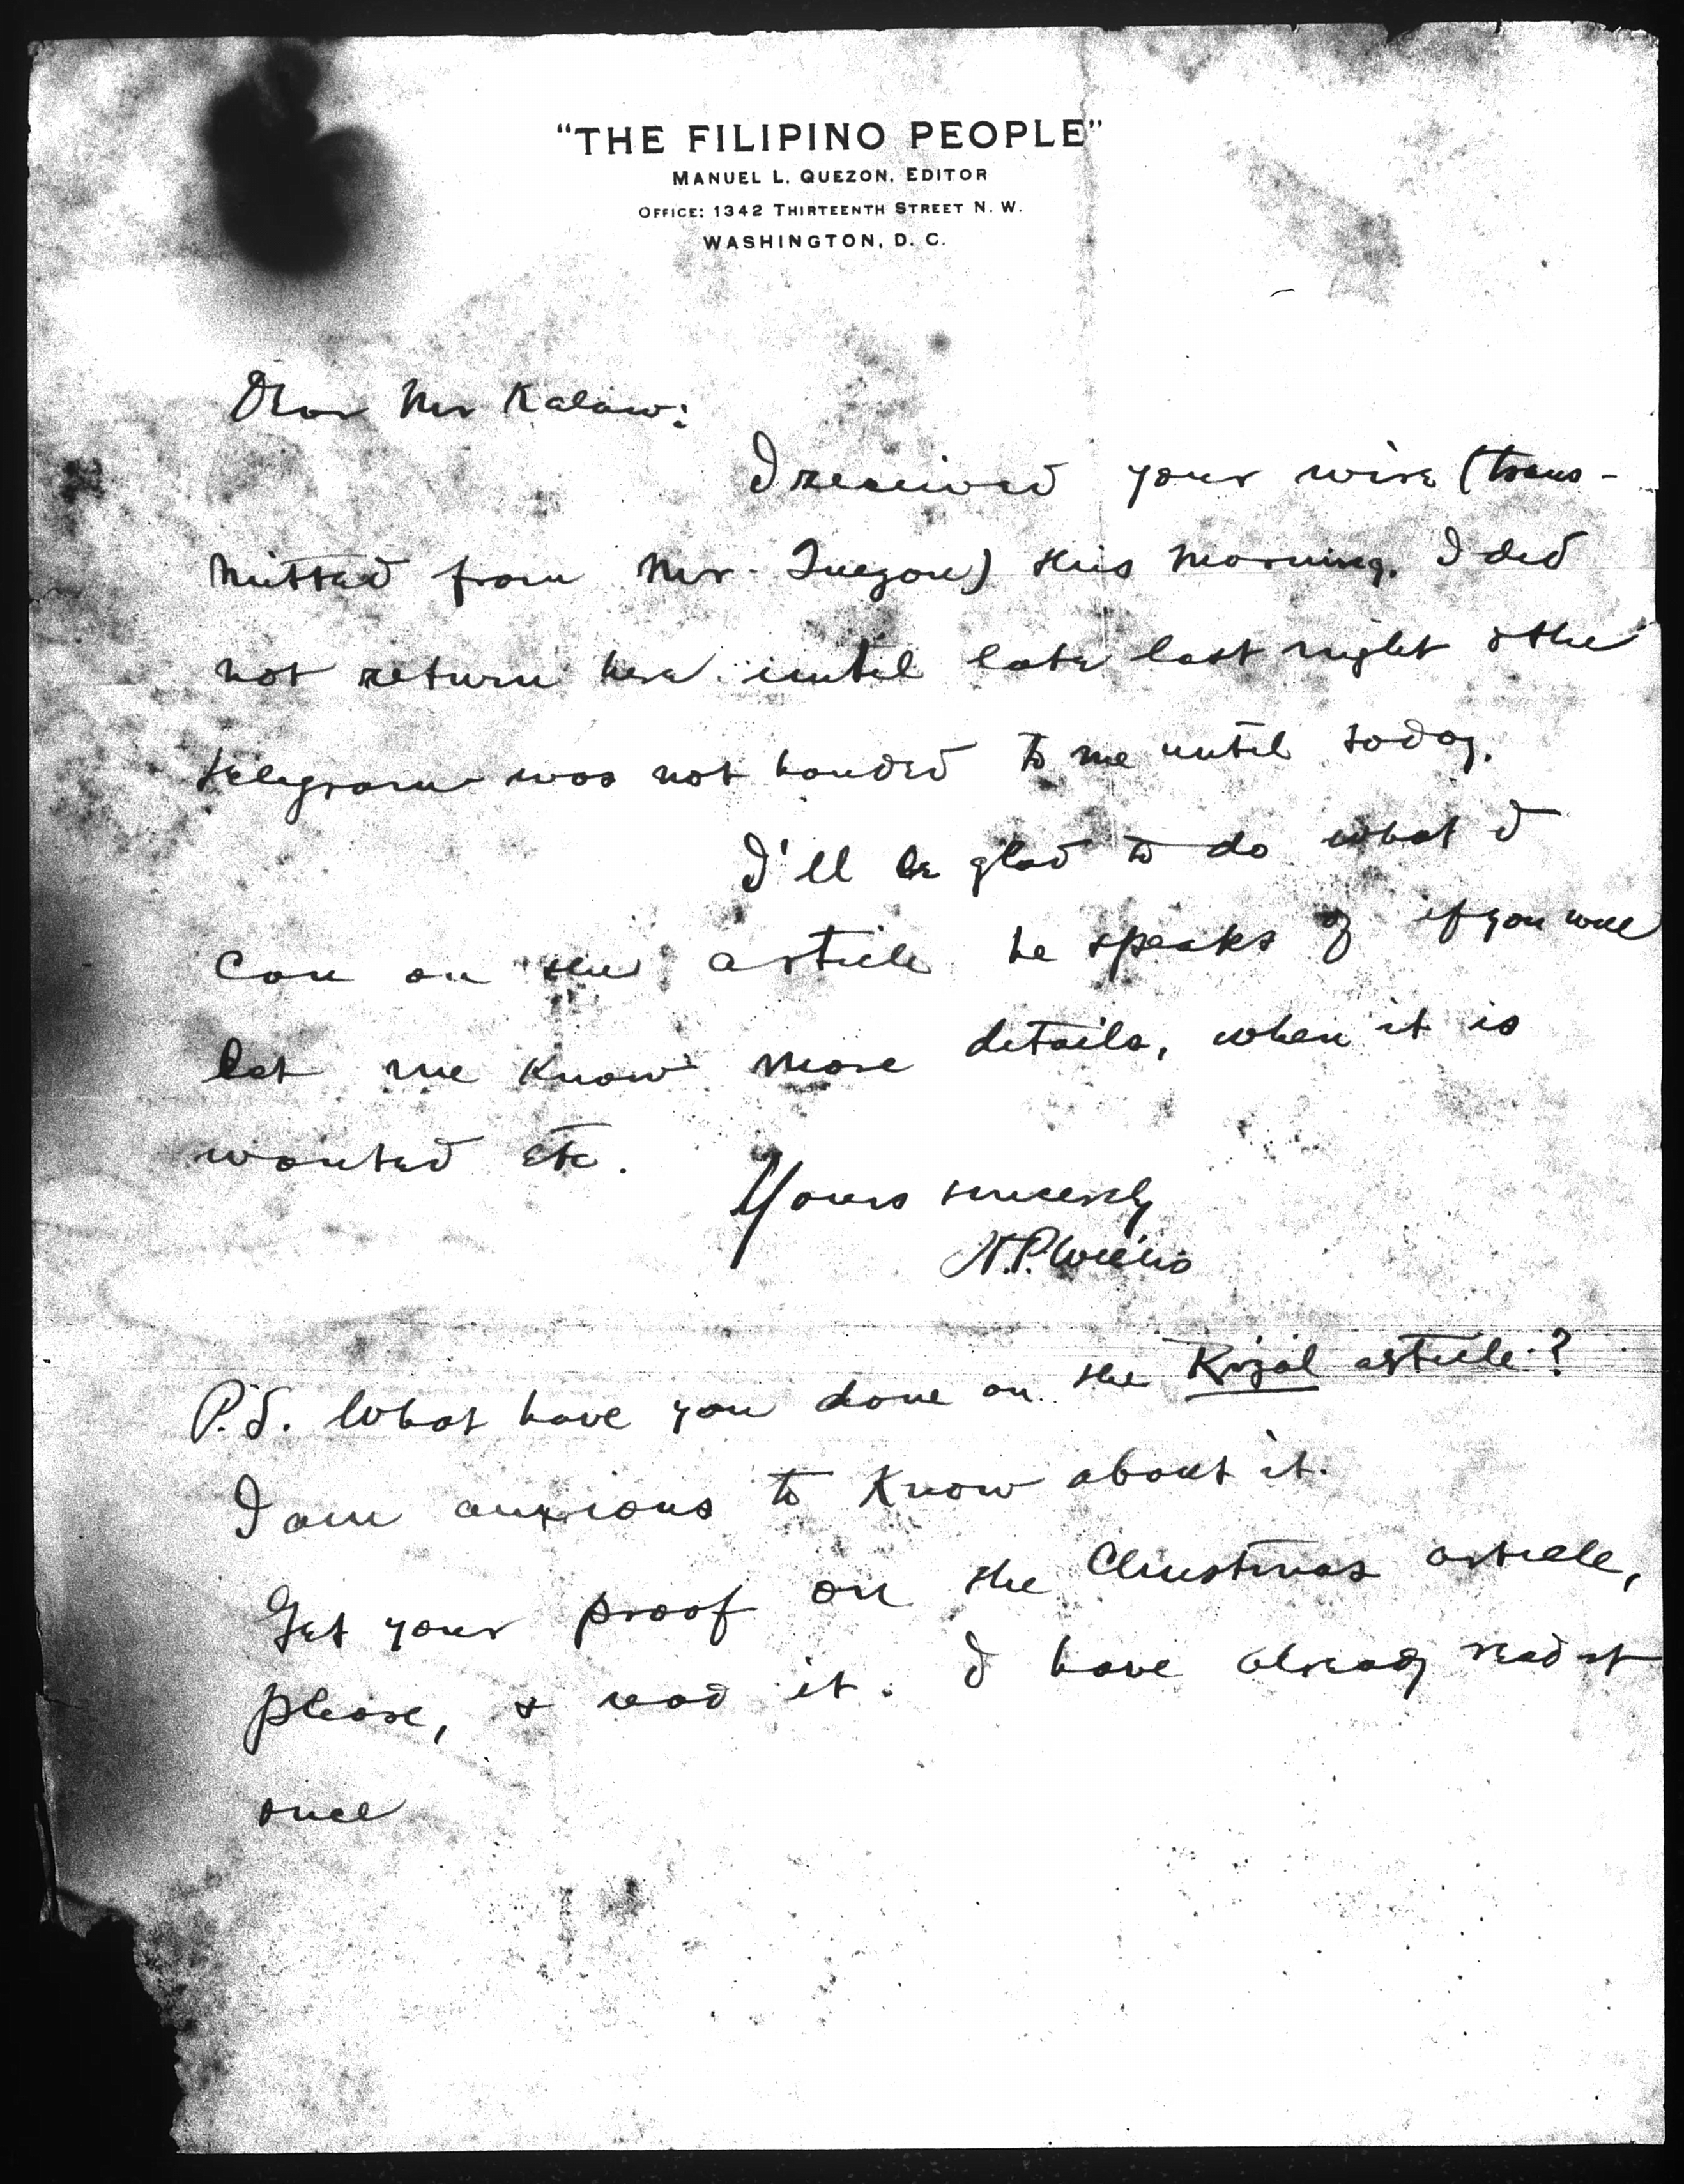 "THE FILIPINO PEOPLE"
MANUEL L. QUEZON, EDITOR
OFFICE: 1342 THIRTEENTH STREET N. W.
WASHINGTON, D. C.
Dear Mr Kalaw:
I received your wire (trans-
mitted from Mr. Quezon) this morning. I did
not return here until late last night & the
telegram was not handed to me until today.
I'll be glad to do what I
can on the article he speaks of if you will
let me know more details, when it is
wanted etc.
Yours sincerely
H.P. Willis
P.S. What have you done on the Rizal article?
I am anxious to know about it.
Get your proof on the Christmas article,
please, & read it. I have already read it
once